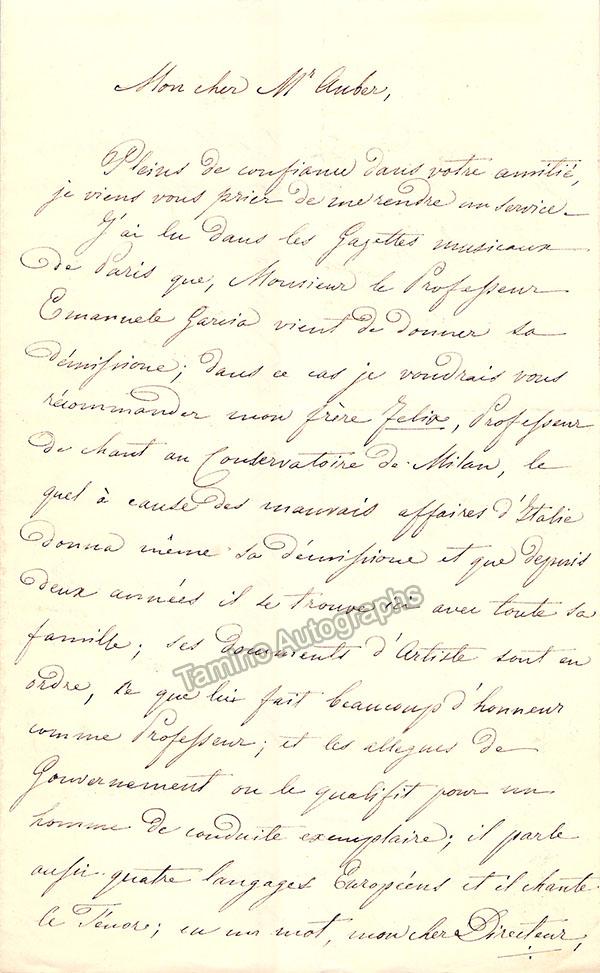 Mon cher Mr Auber,
Pleins de confiance dans votre amitié,
je viens vous prier de me rendre un service.
J'ai lu dans les Gazettes musicaux
de Paris que, Monsieur le Professeur
Emanuele Garcia vient de donner sa
démissione; dans ce cas je voudrais vous
récommander mon frère Felix, Professeur
de chant au Conservatoire de Milan, le
quel à cause des mauvais affaires d'Italie
donna même sa démissione et que depuis
deux années il se trouve ici avec toute sa
famille; ses documents d'Artiste sont en
ordre, ce que lui fait beaucoup d'honneur
comme Professeur; et les allegues de
Gouvernement ou le qualifit pour un
homme de conduite exemplaire; il parle
aussi quatre langages Européens et il chante
le Ténore; en un mot, mon cher Directeur,
Tamino Autographs